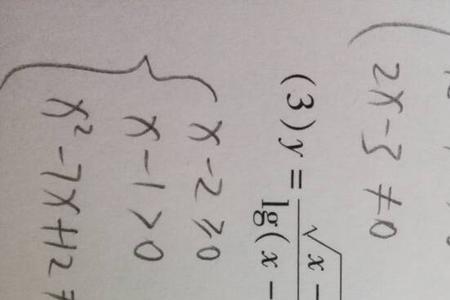 2x-3≠0
(3) y = √x -
lg(x -
x-2≥0
x-1>0
x²-7x+12